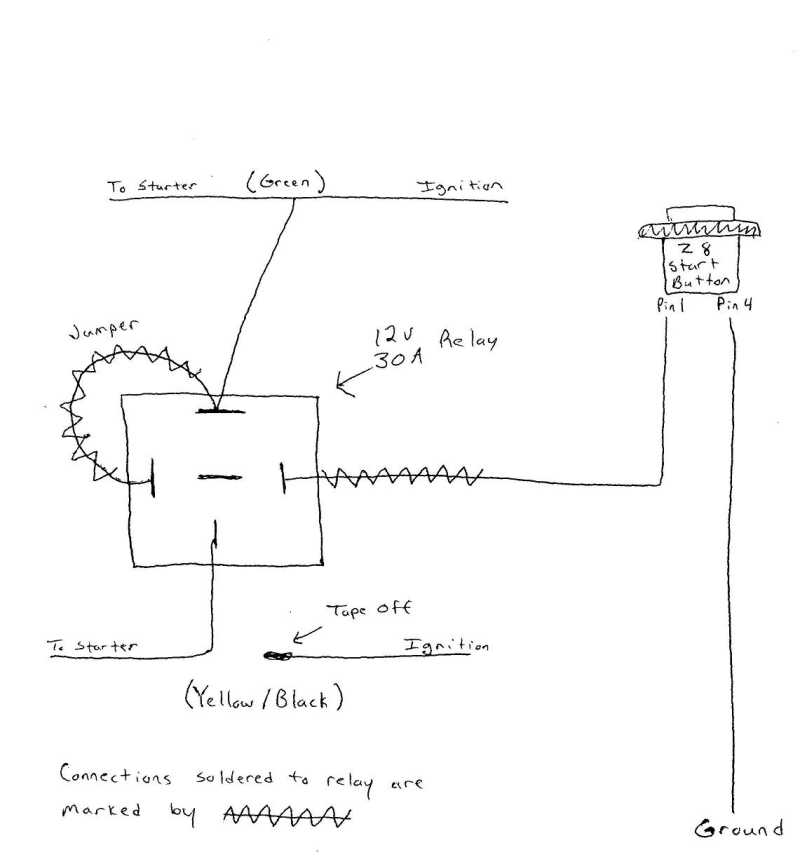 To Starter (Green) Ignition
Z 8
Start
Button
Pin 1 Pin 4
Jumper
12V Relay
30A
Tape Off
To Starter Ignition
(Yellow/Black)
Connections soldered to relay are
marked by
Ground